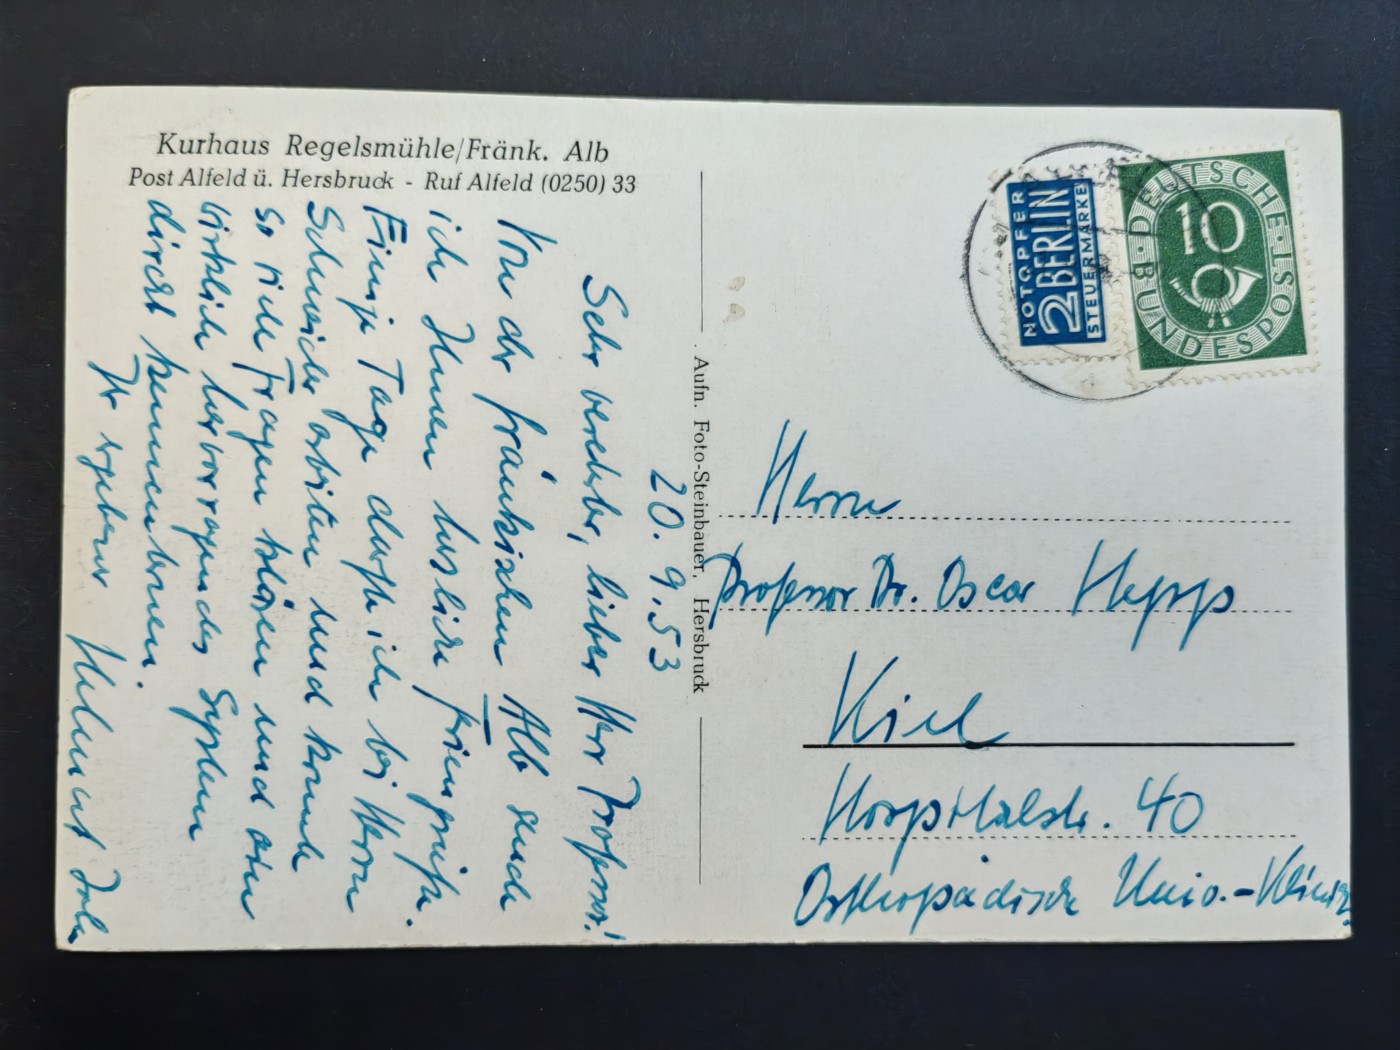 Kurhaus Regelsmühle/Fränk. Alb
Post Alfeld ü. Hersbruck - Ruf Alfeld (0250) 33
20. 9. 53
Sehr verehrter, lieber Herr Professor!
Von der fränkischen Alb sende
ich Ihnen herzliche Feriengrüße.
Einige Tage durfte ich bei Herrn
Schneider arbeiten und konnte
so viele Fragen klären und sein
wirklich hervorragendes System
direkt kennenlernen.
Ihr ergebener Helmut
Aufn. Foto-Steinbauer, Hersbruck
NOTOPFER
2 BERLIN
STEUERMARKE
DEUTSCHE BUNDESPOST
10
Herrn
Professor Dr. Oscar Hepp
Kiel
Hospitalstr. 40
Orthopädische Univ.-Klinik